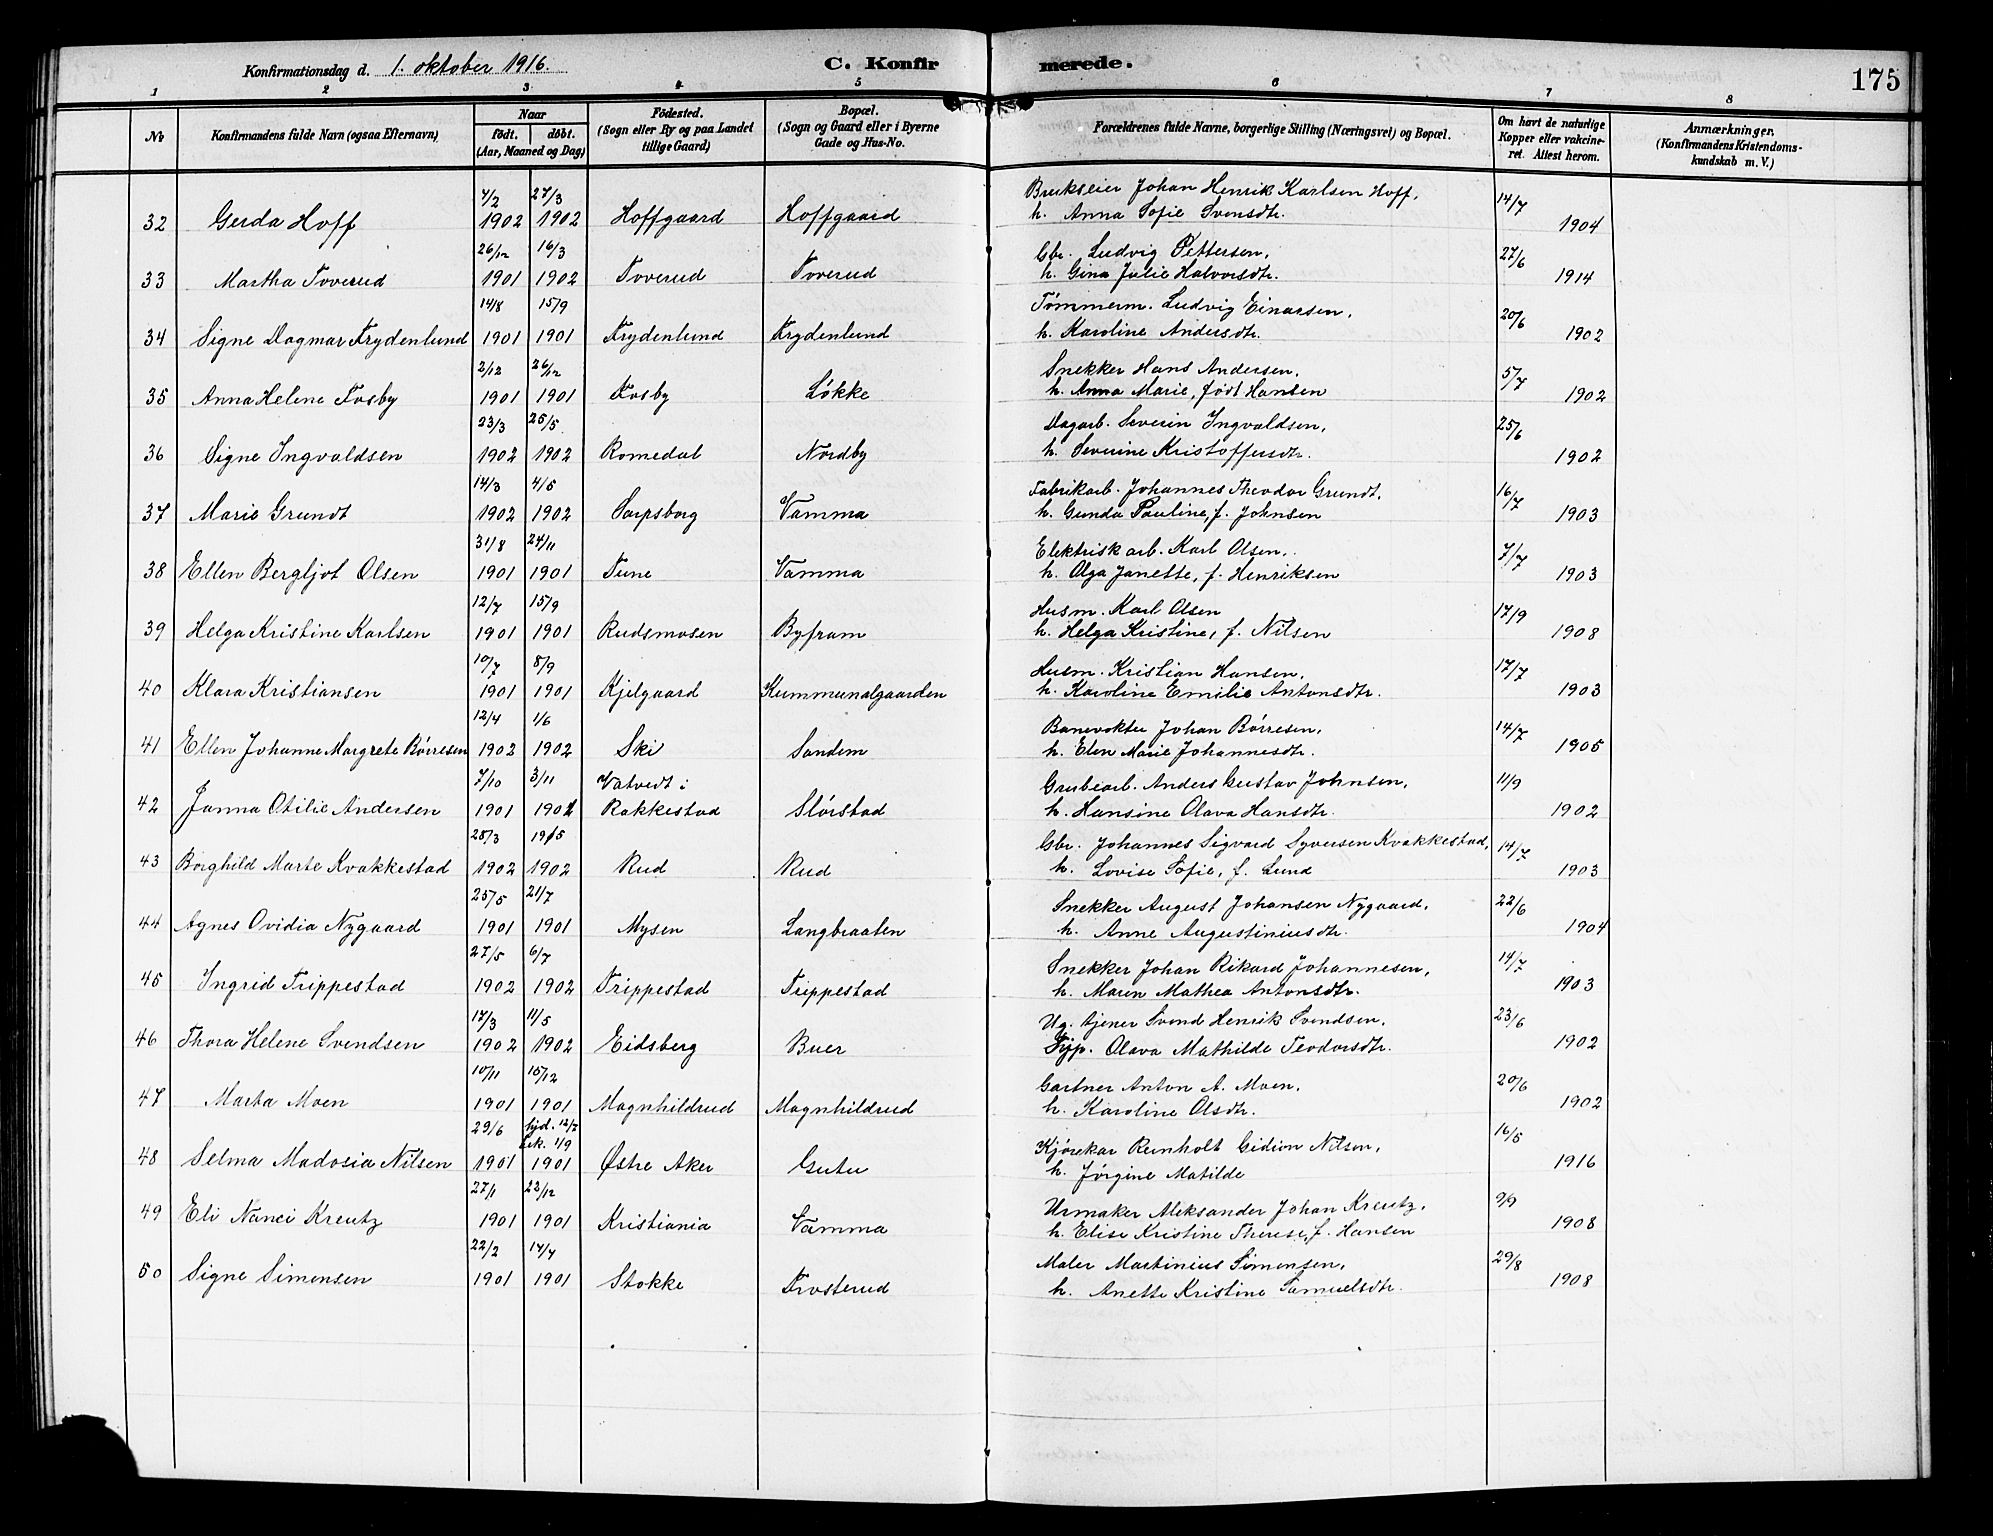 Konfirmationsdag d. 1. oktober 1916. C. Konfirmerede. 175
1 2 3 4 5 6 7 8
No Konfirmandens fulde Navn (ogsaa Efternavn) Naar født. døbt. (Aar, Maaned og Dag) Fødested. (Sogn eller By og paa Landet tillige Gaard) Bopæl. (Sogn og Gaard eller i Byerne Gade og Hus-No.) Forældrenes fulde Navne, borgerlige Stilling (Næringsvei) og Bopæl. Om havt de naturlige Kopper eller vakcineret. Attest herom. Anmærkninger. (Konfirmandens Kristendomskundskab m. V.)
7/2 27/3 Brukseier Johan Henrik Karlsen Hoff, 14/7
32 Gerda Hoff 1902 1902 Hoffgaard Hoffgaard h. Anna Sofie Svensdtr. 1904
26/12 16/3 Gbr. Ludvig Pettersen, 27/6
33 Martha Toverud 1901 1902 Toverud Toverud h. Gina Julie Halvorsdtr. 1914
14/8 15/9 Tømmerm. Ludvig Einarsen, 20/6
34 Signe Dagmar Frydenlund 1901 1901 Frydenlund Frydenlund h. Karoline Andersdtr. 1902
2/12 26/12 Snekker Hans Andersen, 5/7
35 Anna Helene Fosby 1901 1901 Fosby Løkke h. Anna Marie, født Hansen 1902
23/3 25/5 Dagarb. Severin Ingvaldsen, 25/6
36 Signe Ingvaldsen 1902 1902 Romedal Nordby h. Severine Kristoffersdtr. 1902
14/3 4/5 Fabrikarb. Johannes Theodor Grundt, 16/7
37 Marie Grundt 1902 1902 Sarpsborg Vamma h. Gunda Pauline, f. Johnsen 1903
31/8 24/11 Elektrisk arb. Karl Olsen, 7/7
38 Ellen Bergljot Olsen 1901 1901 Tune Vamma h. Olga Janette, f. Henriksen 1903
12/7 15/9 Husm. Karl Olsen 17/9
39 Helga Kristine Karlsen 1901 1901 Rudsmosen Byfram h. Helga Kristine, f. Nilsen 1908
10/7 8/9 Husm. Kristian Hansen, 17/7
40 Klara Kristiansen 1901 1901 Kjilgaard Kummunalgaarden h. Karoline Emilie Antonsdtr. 1903
12/4 1/6 Banevokter Johan Børresen, 14/7
41 Ellen Johanne Margrete Børresen 1902 1902 Ski Sandem h. Elen Marie Johannesdtr. 1905
7/10 3/11 Vatvedt i Grubearb. Anders Gustav Johnsen, 11/9
42 Janna Otilie Andersen 1901 1901 Rakkestad Slørstad h. Hansine Olava Hansdtr. 1902
25/3 19/5 Gbr. Johannes Sigvard Syversen Kvakkestad, 14/7
43 Borghild Marte Kvakkestad 1902 1902 Rud Rud h. Lovise Sofie, f. Lund 1903
25/5 21/7 Snekker August Johansen Nygaard, 22/6
44 Agnes Ovidia Nygaard 1901 1901 Mysen Langbraaten h. Anne Augustiniusdtr. 1904
27/5 6/7 Snekker Johan Rikard Johannesen, 14/7
45 Ingrid Trippestad 1902 1902 Trippestad Trippestad h. Maren Mathea Antonsdtr. 1903
17/3 11/5 Ug. tjener Svend Henrik Svendsen, 23/6
46 Thora Helene Svendsen 1902 1902 Eidsberg Buer Olava Mathilde Teodorsdtr. 1902
10/11 15/12 Gartner Anton A. Moen, 20/6
47 Marta Moen 1901 1901 Magnhildrud Magnhildrud h. Karoline Olsdtr. 1902
29/6 hjd. 12/7 Kjørekar Reinholt Gidion Nilsen, 16/5
bek. 1/9
48 Selma Madosia Nilsen 1901 1901 Østre Aker Gutu h. Jørgine Matilde 1916
27/1 22/12 Urmaker Aleksander Johan Kreutz, 9/9
49 Eli Nanci Kreutz 1901 1901 Kristiania Vamma h. Elise Kristine Therese, f. Hansen 1908
22/2 14/4 Maler Martinius Simensen, 29/8
50 Signe Simensen 1901 1901 Stokke Frosterud h. Anette Kristine Samuelsdtr. 1908